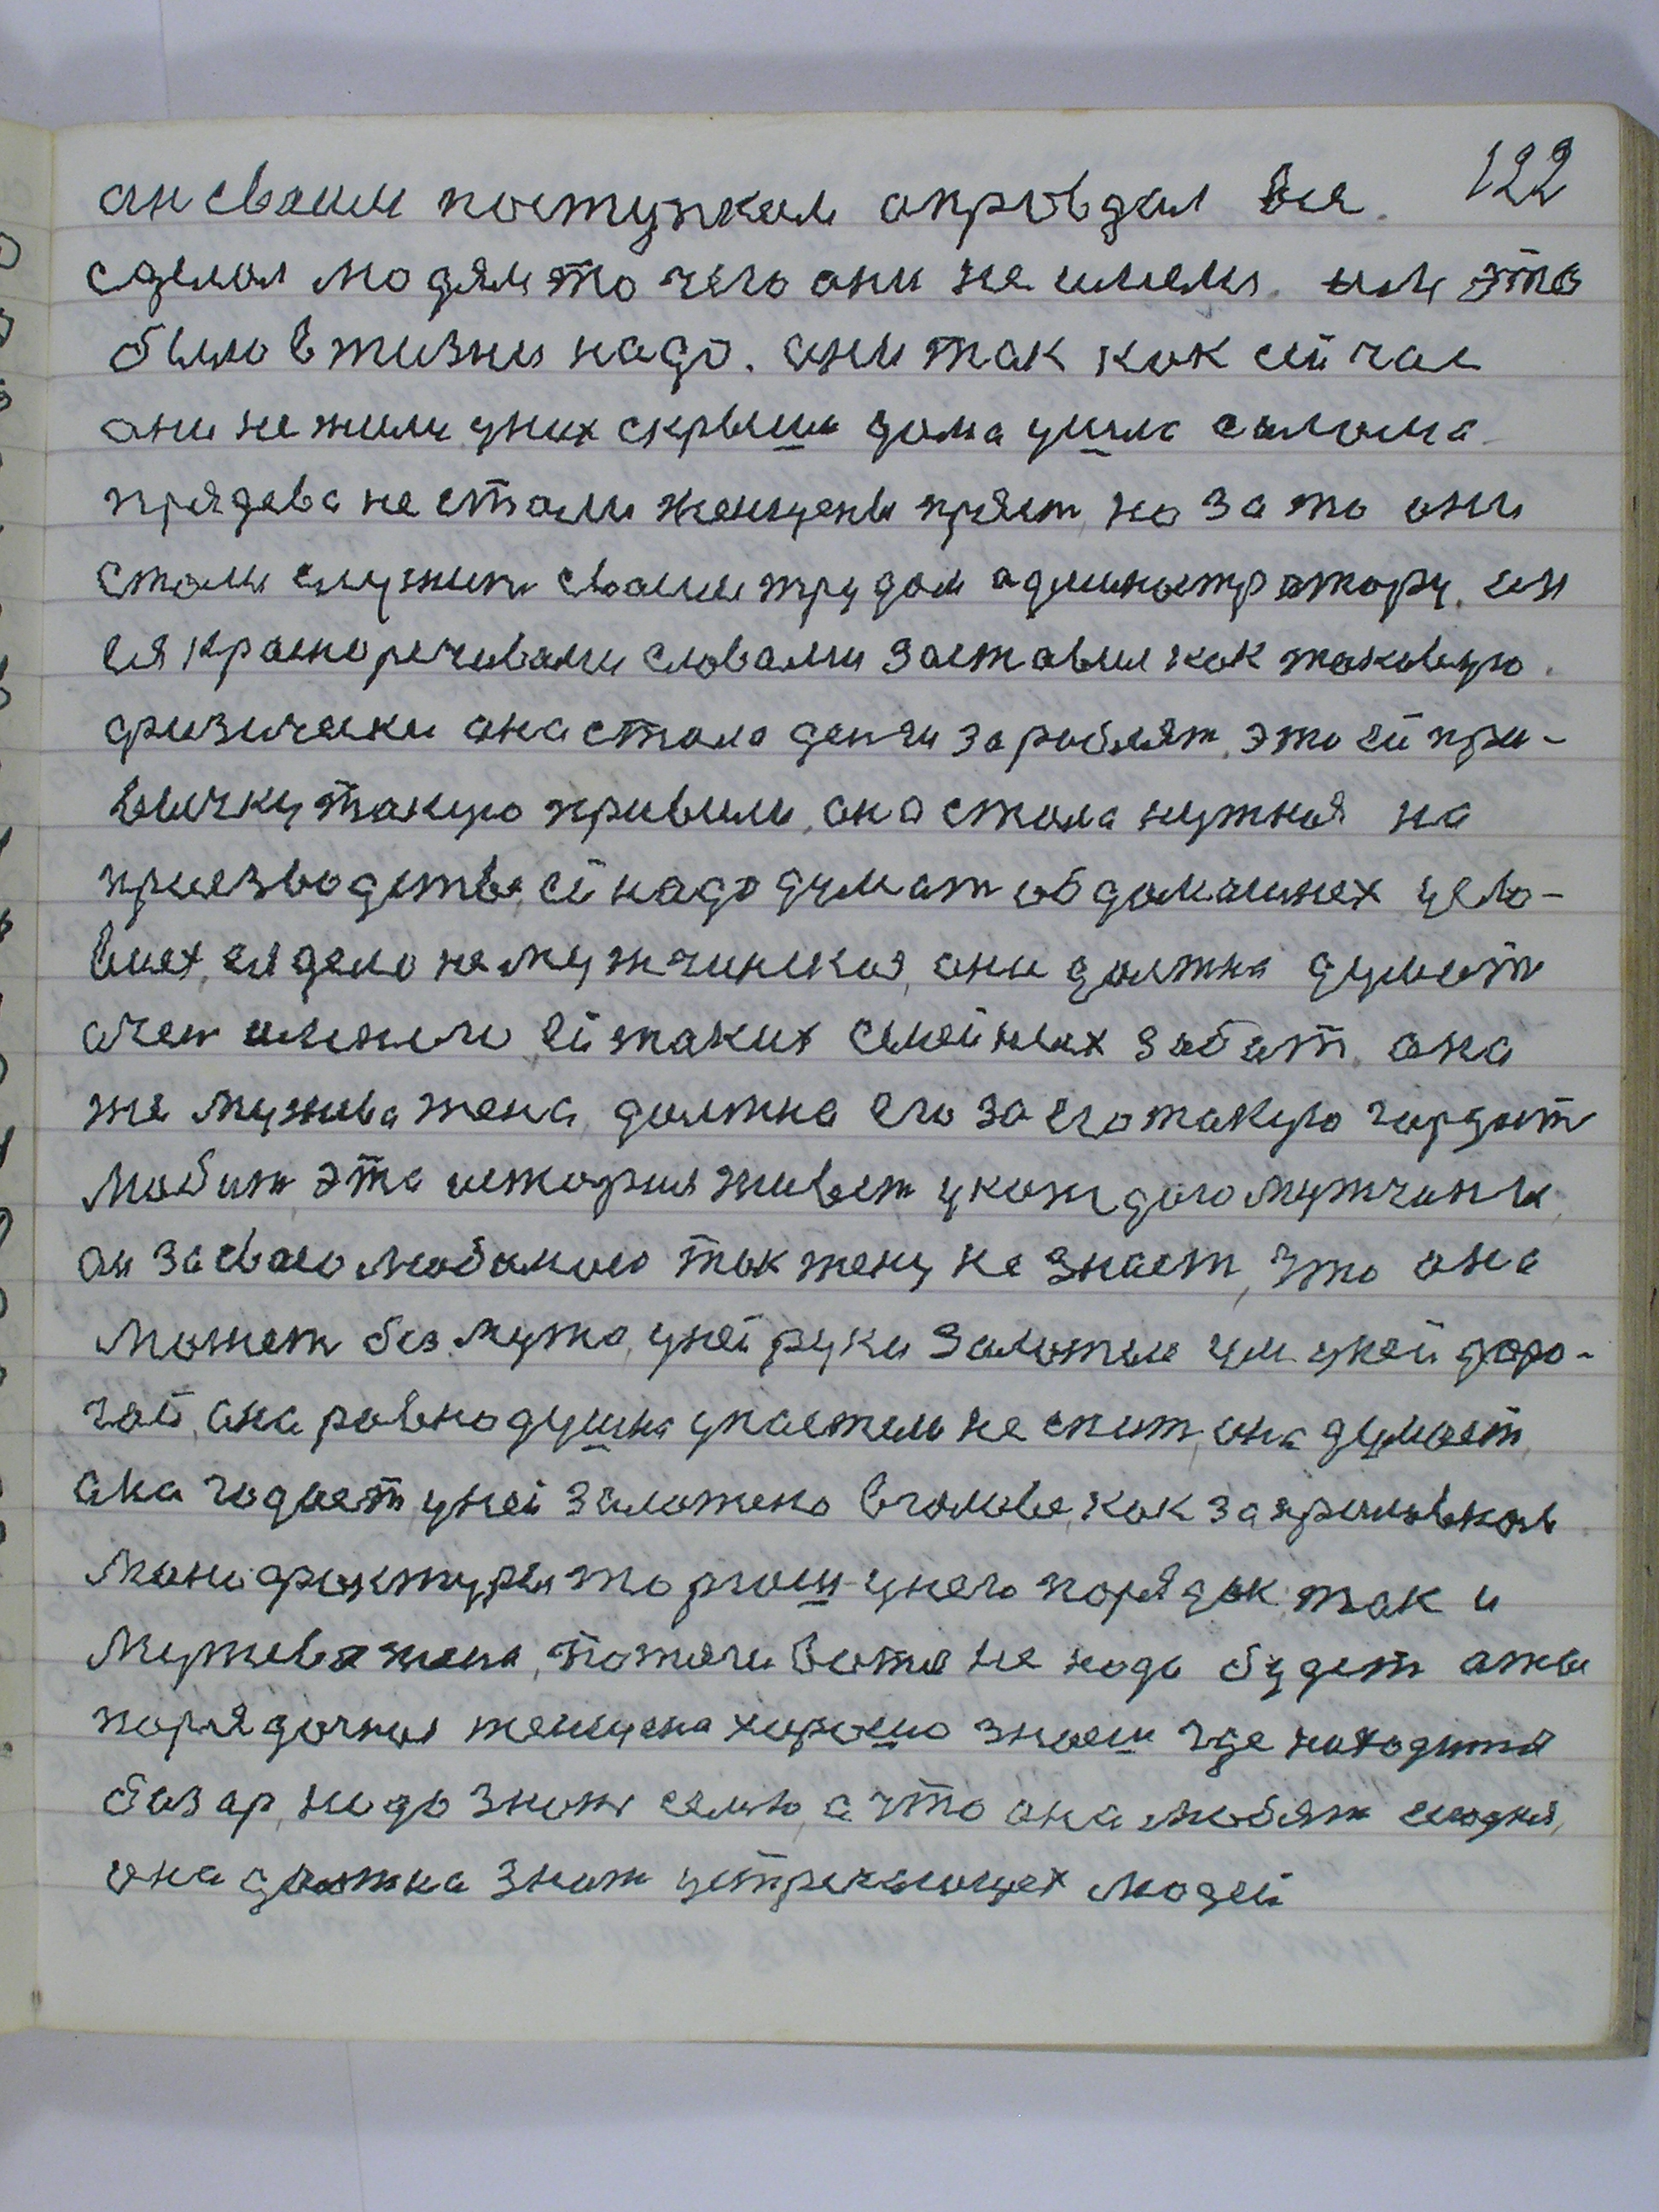 122
ан сваим поступкам аправдал все.
сделал людям то чего они не имели. им это
было в жизни надо. ани так как сийчас
ани не жили у них скрыши дома ушла салома
прядева не стали женщены пряст, но за то они
стали служить сваим трудом администратору. им
ея красноречивами словами заставил как таковую.
физически ана стала деньги зароблят, это ей при-
вычку такую привили, ана стала нужная на
приезводстве, ей надо думат об домашнех усло-
виех, ея дело не мужчинская, ани должна думат
а чем именно, ей таких семейнех забат. ана
же мужева жена, должна его за его такую гордит
любит эта история живет у каждого мужчины,
ан за сваю любимою так жену не знает, что ана
может без мужа, у ней руки залотые ум у ней доро-
гой, ана равнодушна у пастели не спит, она думает,
ана гадает, у ней заложено в голове, как за прилавком
манифактуры торгаш у него порядок так и
мужева жена, потому вота не надо будет аны
порядочная женщена хорошо знаеш где находится
базар, надо знать семю, а что ана любят сиодня,
она должна знат устречающех людей